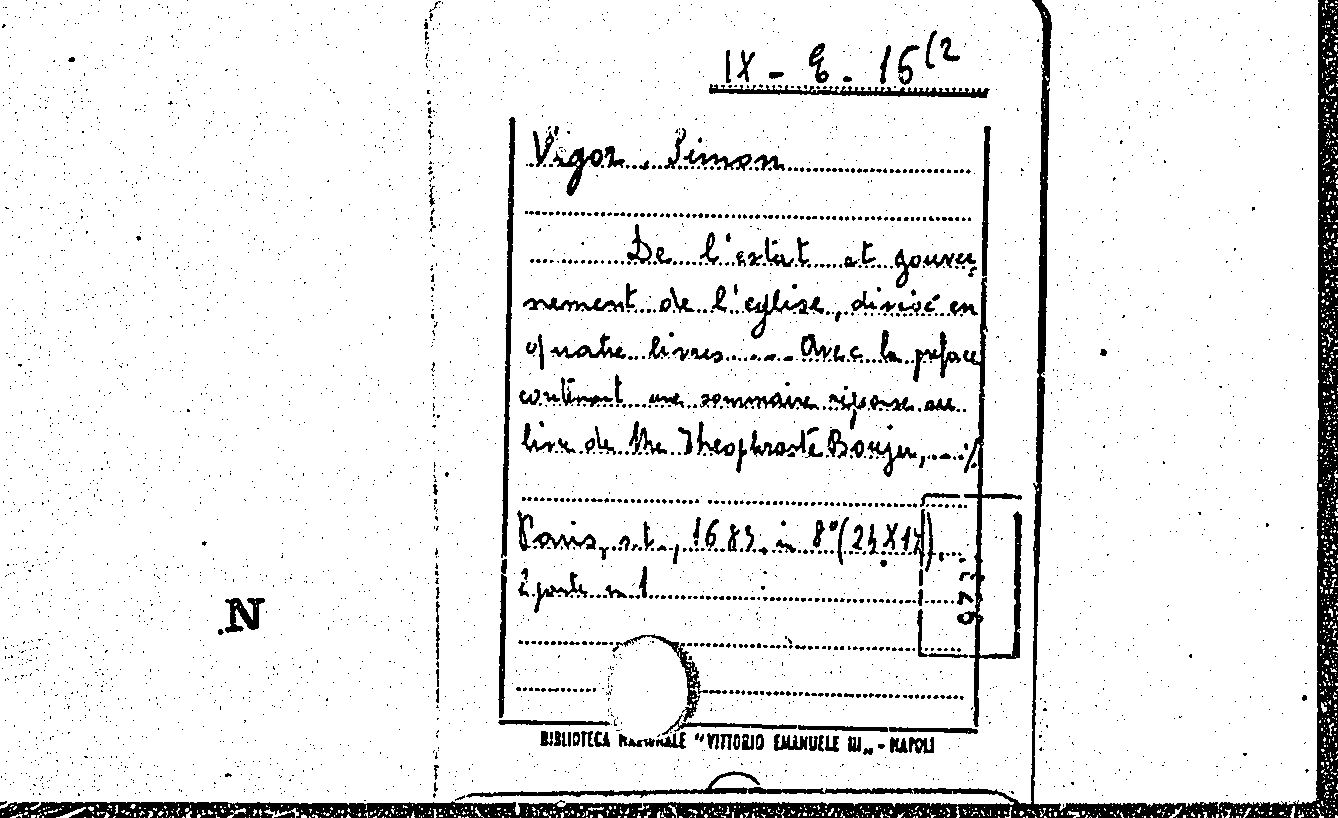 IX - E. 15(2
Vigor, Simon
De l'estat et gouver
nement de l'eglise, divisé en
quatre livres.... Avec la preface
contenant une sommaire réponse au
livre de Me Theophraste Boujeu, ...%
Paris, s.t., 1683. in 8°(24X17).
2 parte in 1
973
N
BIBLIOTECA NAZIONALE "VITTORIO EMANUELE III„ - NAPOLI